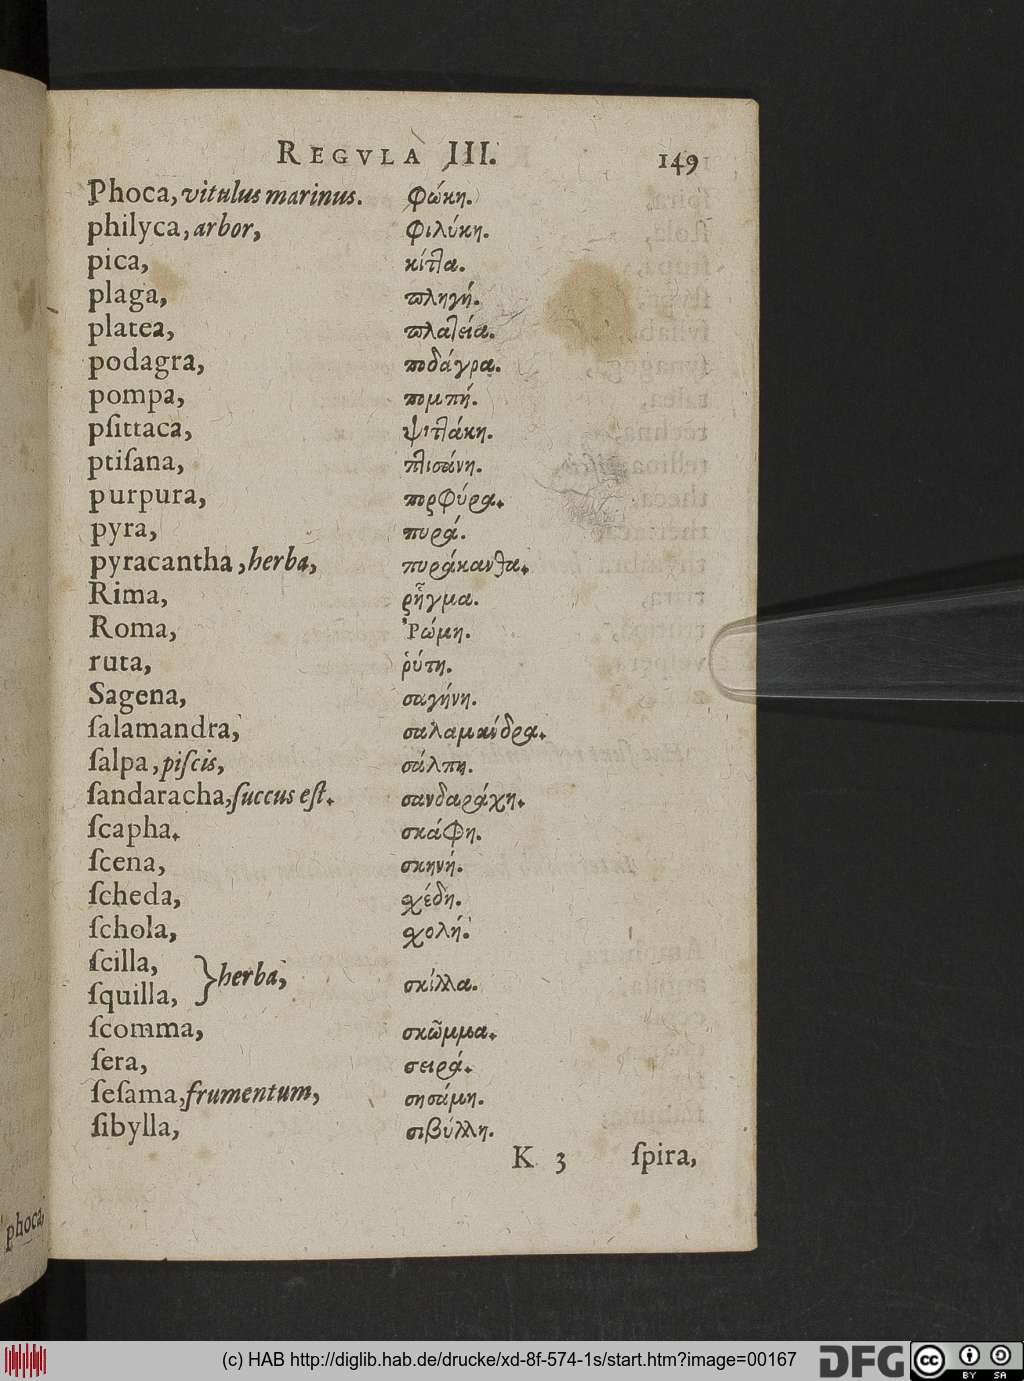 REGVLA III. 149
Phoca, vitulus marinus. φώκη.
philyca, arbor, φιλύκη.
pica, κίτ]α.
plaga, ϖληγή.
platea, ϖλατεία.
podagra, ποδάγρα.
pompa, πομπή.
pſittaca, ψιτ]άκη.
ptiſana, πτισάνη.
purpura, πορφύρα.
pyra, πυρά.
pyracantha, herba, πυράκανθα.
Rima, ῥῆγμα.
Roma, Ῥώμη.
ruta, ῥύτη.
Sagena, σαγήνη.
ſalamandra, σαλαμάνδρα.
ſalpa, piſcis, σάλπη.
ſandaracha, ſuccus eſt. σανδαράχη.
ſcapha. σκάφη.
ſcena, σκηνή.
ſcheda, σχέδη.
ſchola, σχολή.
ſcilla,
ſquilla, } herba, σκίλλα.
ſcomma, σκῶμμα.
ſera, σειρά.
ſeſama, frumentum, σησάμη.
ſibylla, σιβύλλη.
K 3 ſpira,
phoca,
(c) HAB http://diglib.hab.de/drucke/xd-8f-574-1s/start.htm?image=00167 DFG cc BY SA